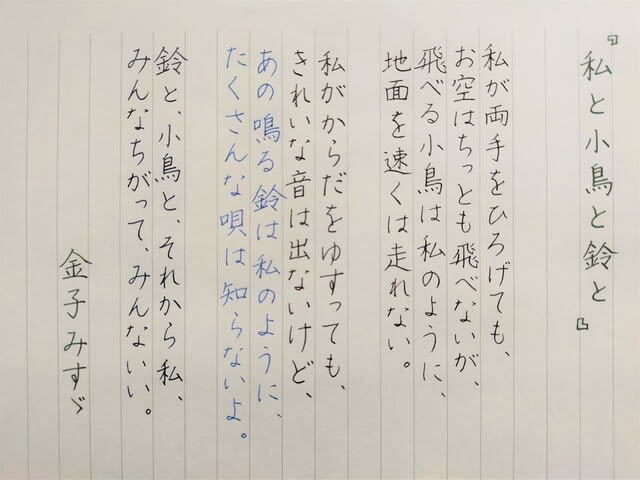 『私と小鳥と鈴と』
私が両手をひろげても、
お空はちっとも飛べないが、
飛べる小鳥は私のように、
地面を速くは走れない。
私がからだをゆすっても、
きれいな音は出ないけど、
あの鳴る鈴は私のように、
たくさんな唄は知らないよ。
鈴と、小鳥と、それから私、
みんなちがって、みんないい。
金子みすゞ